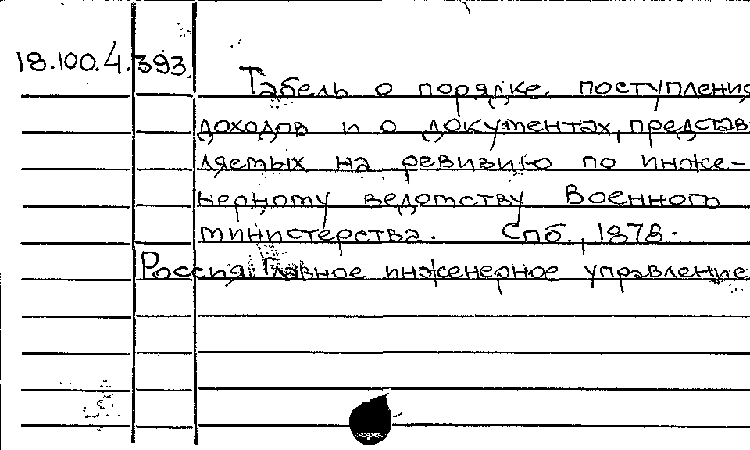 18.100.4.393
Табель о порядке поступления
доходов и о документах, представ
ляемых на ревизию по инже-
нерному ведомству Военного
министерства. Спб., 1878.
Россия. Главное инженерное управление